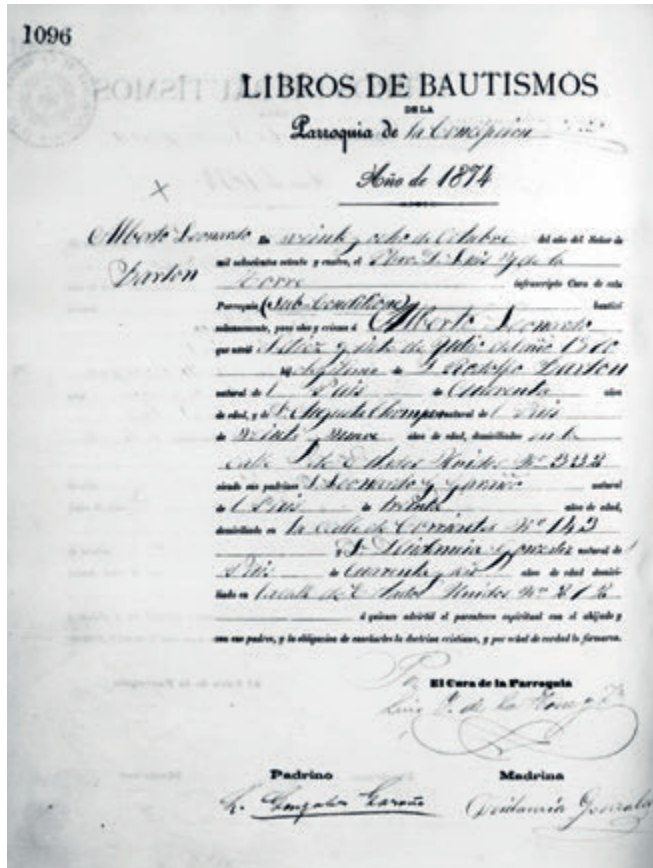 1096
LIBROS DE BAUTISMOS
DE LA
Parroquia de la Concepcion
Año de 1874
Alberto Leonardo
Barton
En veinte y ocho de Octubre del año del Señor de
mil ochocientos setenta y cuatro, el Pbro. D. Luis J. de la
Torre infrascripto Cura de esta
Parroquia (Sub Conditione) bautizó
solemnemente, puso oleo y crisma á Alberto Leonardo
que nació el diez y siete de Julio del año
hijo legítimo de D. Rodolfo Barton
natural de l Pais de Cuarenta años
de edad, y de Da. Augusta natural de l Pais
de veinte y nueve años de edad, domiciliados en la
calle de Estados Unidos No
siendo sus padrinos D. Leonardo G. natural
de l Pais de treinta años de edad,
domiciliado en la calle de Corrientes No 143
y Da. Gonzalez natural de l
Pais de Cuarenta y seis años de edad domici-
liado en la calle de Estados Unidos No
á quienes advirtió el parentesco espiritual con el ahijado y
con sus padres, y la obligacion de enseñarle la doctrina cristiana, y por verdad lo firmamos.
El Cura de la Parroquia
Luis J. de la Torre y
Padrino
Madrina
L. Gonzalez Garaño
Gonzalez